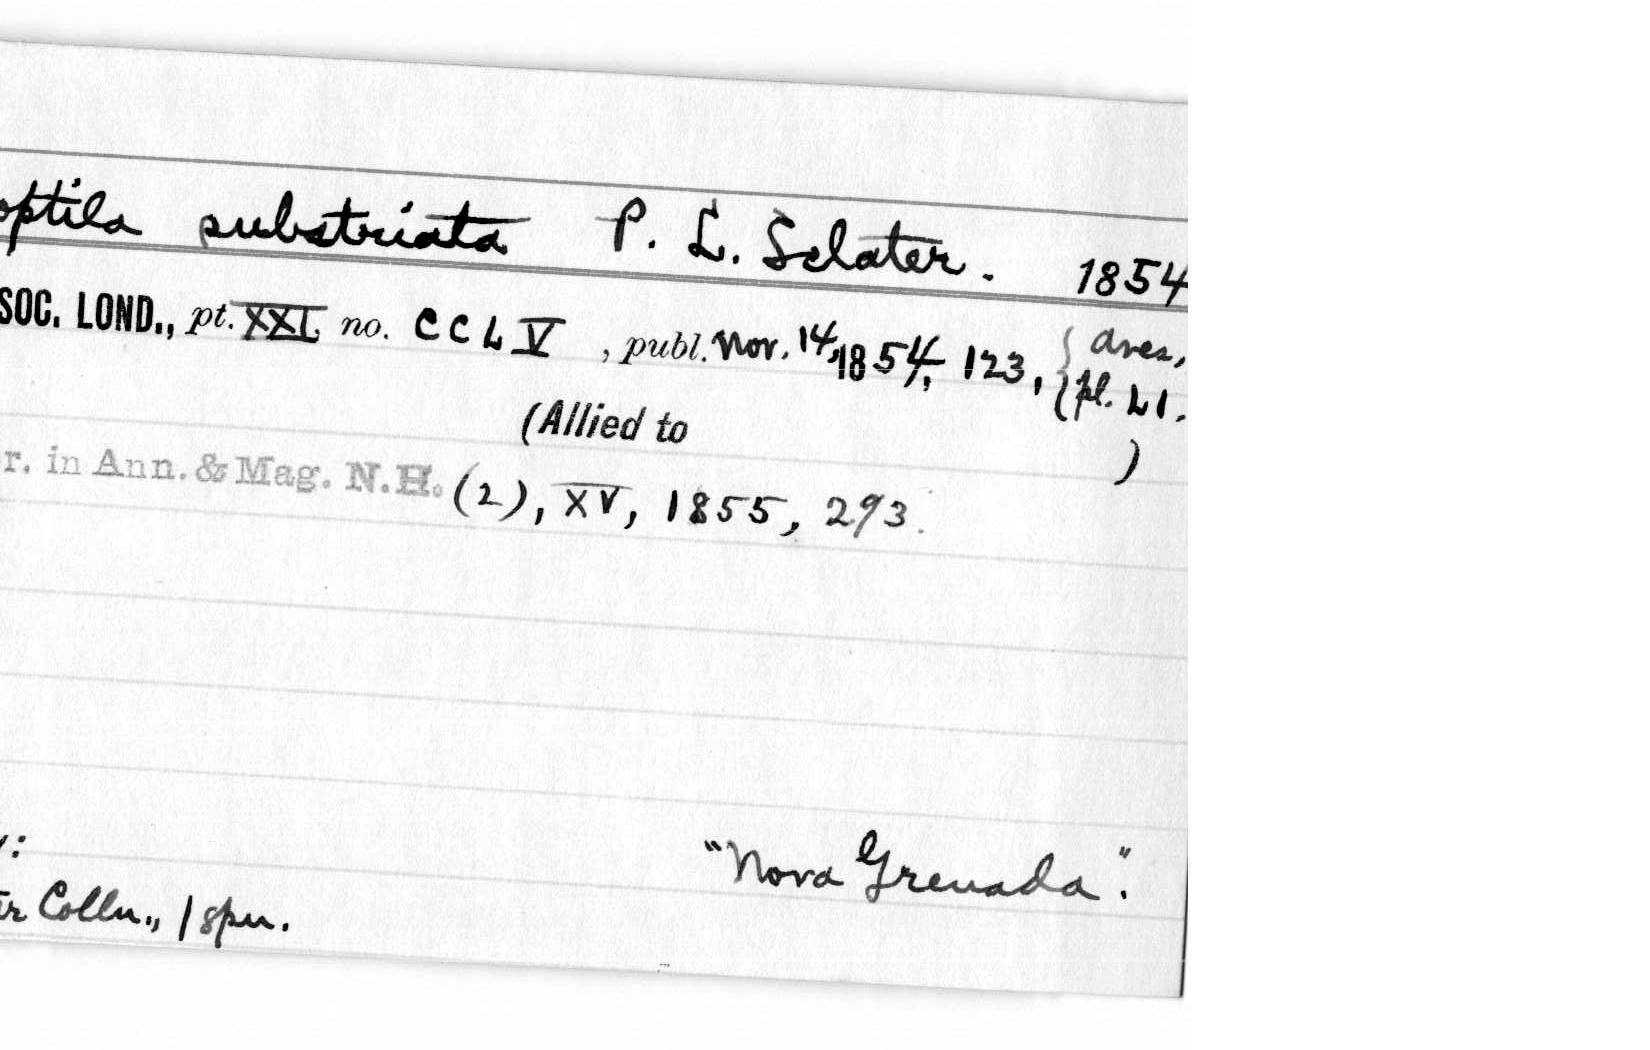 optila substriata P. L. Sclater. 1854
SOC. LOND., pt. XXI, no. CCLV, publ. Nov. 14, 1854, 123, { Aves,
{ pl. LI.
(Allied to )
r. in Ann. & Mag. N.H. (2), XV, 1855, 293.
"Nova Grenada".
y:
er Colln., 1 spn.